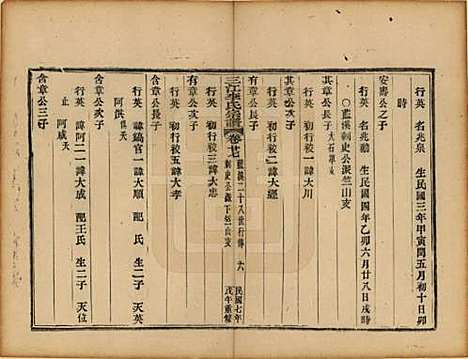 行英 名兆泉 生民國三年甲寅閏五月初十日卯
時
安壽公之子
行英 名兆勳 生民國四年乙卯六月廿八日戌時
○藍溪剌史公派竺山支
其章公長子
行英 初行校一諱大川
其章公次子
行英 初行校二諱大經
三江李氏宗譜 卷廿七 藍溪二十八世行傳 剌史公派下竺山支 六 民國七年戊午重修
有章公長子
行英 初行校三諱大忠
有章公次子
行英 初行校五諱大孝
含章公長子
行英 諱鍋官一諱大順 配 氏 生二子 天英
阿洪 俱夭
含章公次子
行英 諱阿二一諱大成 配王氏 生二子 天位
止 阿咸夭
含章公三子